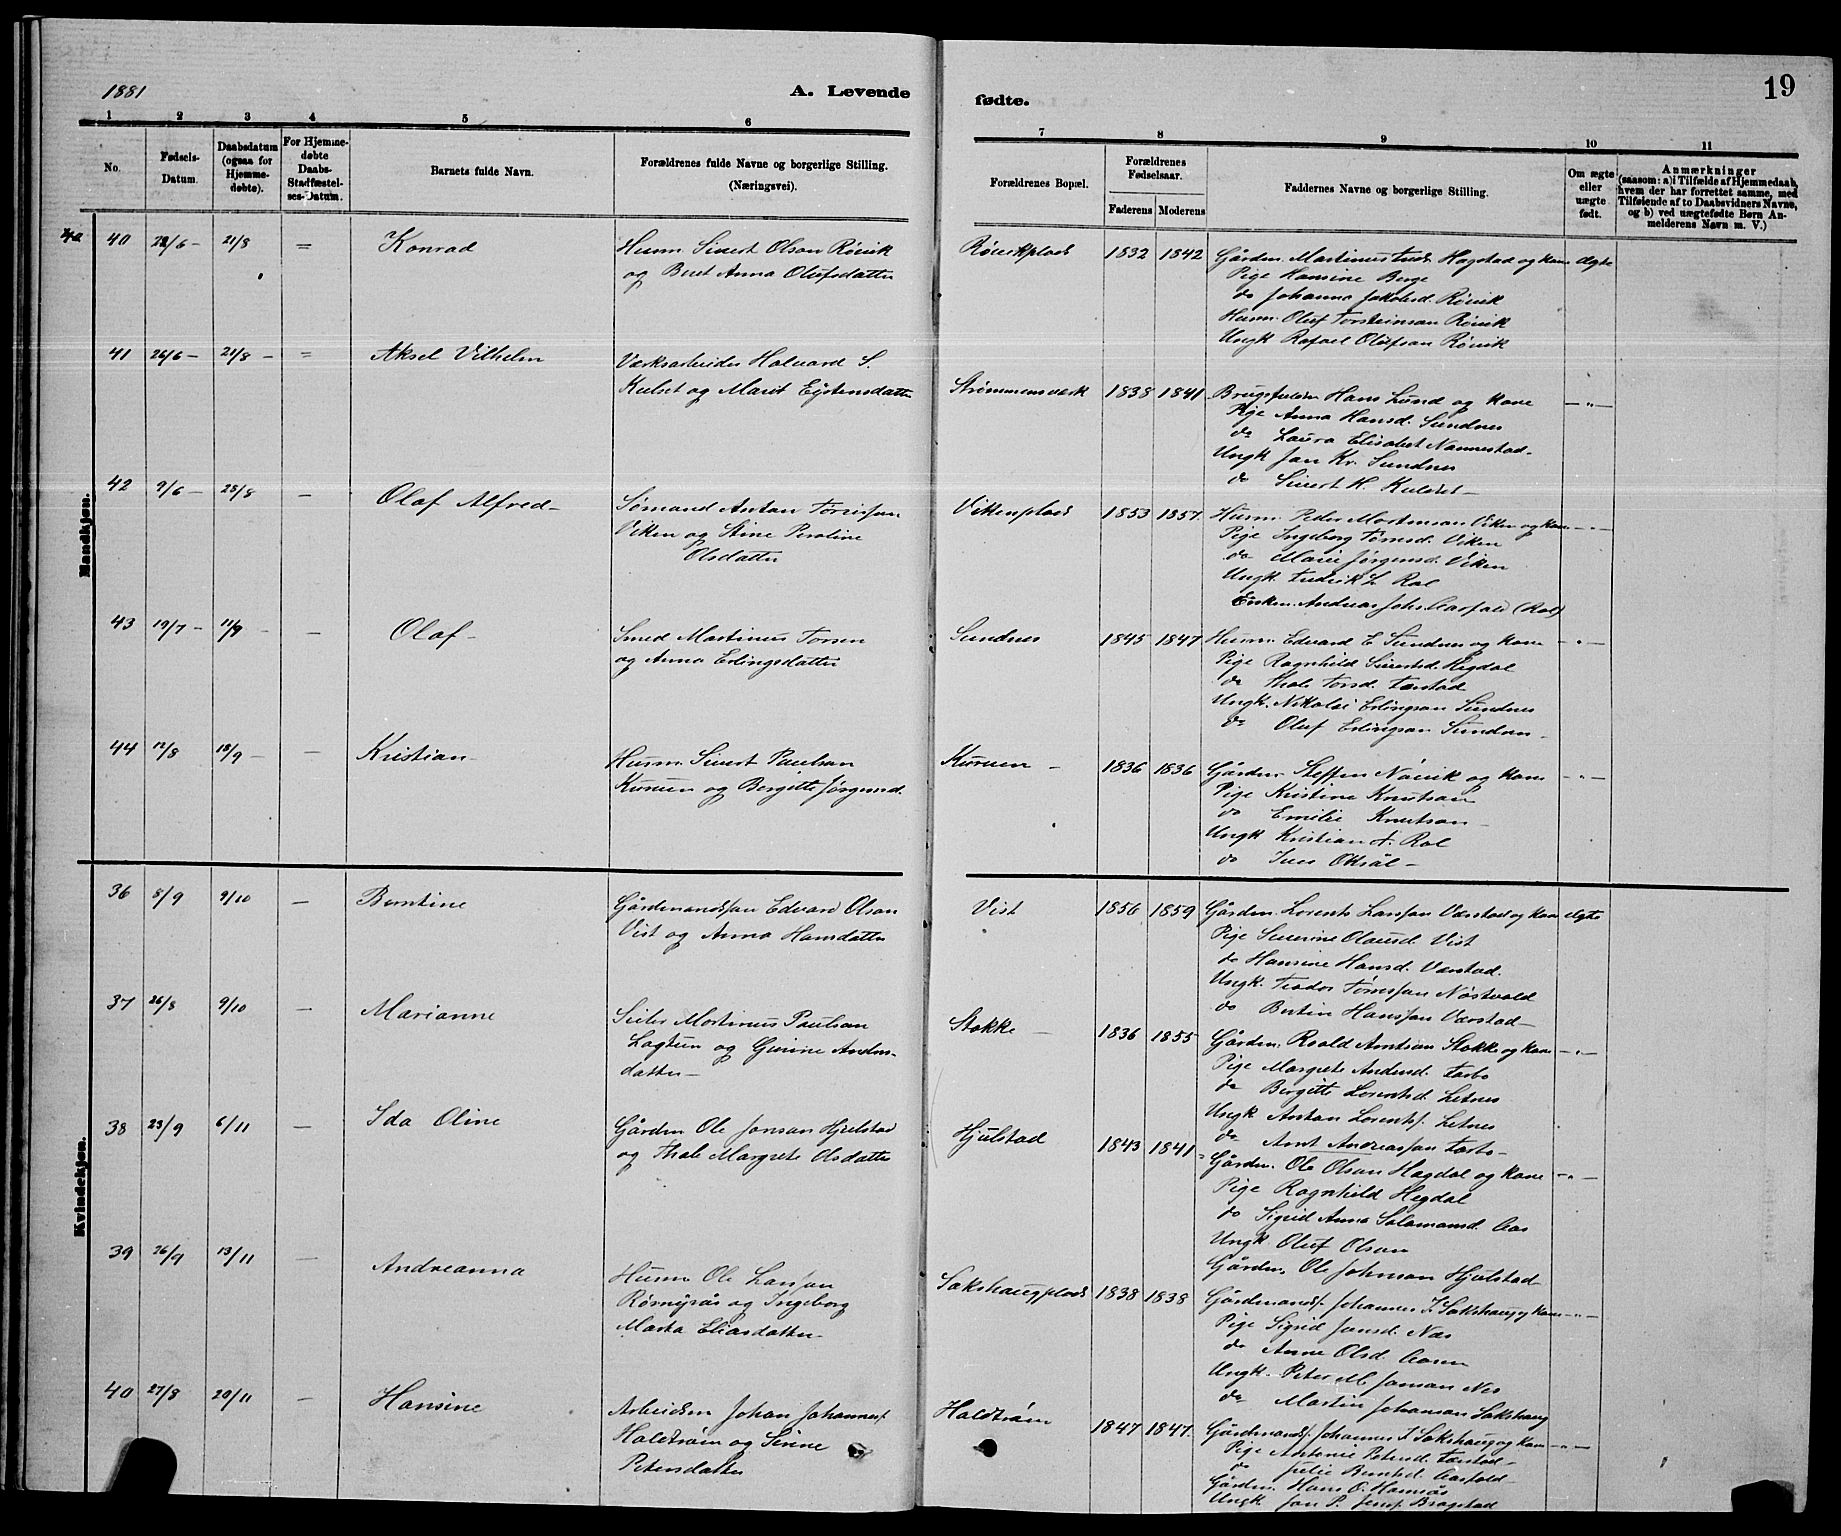 1881
A. Levende
fødte.
19
1 2 3 4 5 6 7 8 9 10 11
No.
Fødsels-Datum.
Daabsdatum (ogsaa for Hjemmedøbte).
For Hjemmedøbte Daabs-Stadfæstelses-Datum.
Barnets fulde Navn.
Forældrenes fulde Navne og borgerlige Stilling.
(Næringsvei).
Forældrenes Bopæl.
Forældrenes Fødselsaar.
Faderens Moderens
Faddernes Navne og borgerlige Stilling.
Om ægte eller uægte født.
Anmærkninger
(saasom: a) i Tilfælde af Hjemmedaab,
hvem der har forrettet samme, med
Tilføiende af to Daabsvidners Navne,
og b) ved uægtefødte Børn Anmelderens Navn m. V.)
Mandkjøn.
40 22/6 - 21/8 = Konrad
Husm Sivert Olsen Røvik
og Beret Anna Olufsdatter
Røvikplads 1832 1842
Gårdm. Martinus Hagstad og kone ægte
Pige Hansine Berge
do Johanna Jakobsd. Røvik
Husm. Oluf Torsteinsan Røvik
Ungk Rafael Olufsan Røvik
41 26/6 - 21/8 - = Aksel Vilhelm
Værksarbeider Halvard S.
Kulset og Marit Eystensdatter
Strømmensværk 1838 1841
Hans Lund og kone — " —
Pige Anna Hansd. Sundnes
do Laura Elisabet Nannestad -
Ungk Jan Kr. Sundnes
do Sivert H. Kulset -
42 9/6 - 28/8 - Olaf Alfred -
Sømand Anton
Viken og Stine Peroline
Olsdatter
Vikenplads 1853 1857
Husm. Peder Mortensan Viken og kone - " -
Pige Ingeborg Viken
do Marie Jørgensd. Viken
Ungk. Fredrik L Rol
Andreas Johs. (Rol)
43 19/7 - 11/9 - - Olaf -
Smed Martinus Torsen
og Anna Erlingsdatter
Sundnes 1845 1847
Husm. Edvard E Sundnes og kone - " -
Pige Ragnhild Sivertsd. Hegdal
do Thale Torsd.
Ungk. Nikolai Erlingsan Sundnes
do Oluf Erlingsan Sundnes -
44 12/8 18/9 - - Kristian -
Husm. Sivert Paulsan
Kurven og Bergitte Jørgensd.
Kurven - 1836 1836
Gårdm. Steffen og kone - " -
Pige Kristine Knutsan
do Emilie Knutsan -
Ungk Kristian A. Rol
do Iver -
Kvindekjøn.
36 8/9 9/10 - Berntine
Gårdmandssøn Edvard Olsan
Vist og Anna Hansdatter
Vist 1856 1859
Gårdm. Lorents Larssan Værstad og kone ægte
Pige Severine Olausd. Vist
do Hansine Hansd. Værstad.
Ungk. Teodor Nøstvold
do Bertin Hanssan Værstad -
37 26/8 9/10 - Marianne
Martinus Paulsan
Lagtun og Gurine Anders-
datter -
Stokke - 1836 1855
Gårdm. Roald Arntsan Stokke og kone - " -
Pige Margrete Andersd.
do Bergitte Lorentsd. Letnes
Ungk Anton Lorents. Letnes
do Arnt Andreassan
38 23/9 6/11 - Ida Oline
Gårdm Ole Jonsan Hjulstad
og Thale Margrete Olsdatter
Hjulstad 1843 1841
Gårdm. Ole Olsan Hagdal og kone - " -
Pige Ragnhild Hegdal
do Sigrid Anna Salamonsd. Aas
Ungk. Oluf Olsan
Gårdm. Ole Johnsan Hjulstad
39 26/9 13/11 - Andreanna
Husm Ole Larssan
Rømyrås og Ingeborg
Marta Eliasdatter -
Sakshaugplads 1838 1838
Gårdmands. Johannes J. Sakshaug og kone - " -
Pige Sigrid Jansd. Næs
do Anne Olsd.
Ungk. Peter M. Jansan Nes
do Martin Johansan Sakshaug
40 27/8 20/11 - Hansine
Arbeidsm Johan Johannes.
Haldtrøm og
Petersdatter
Haldtrøm 1847 1847.
Gårdmands. Johannes J. Sakshaug og kone - " -
Pige Antonie Petersd.
do Julie Berntsd.
Gårdm. Hans O.
Ungk Jan P. Bragstad